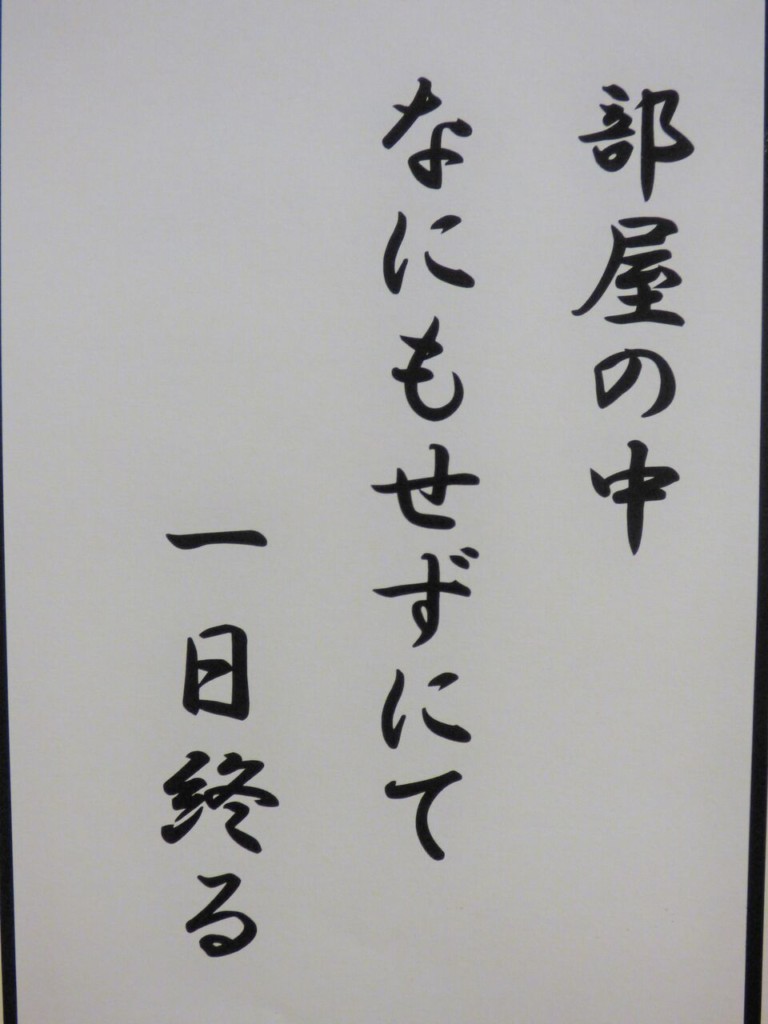 部屋の中
なにもせずにて
一日終る